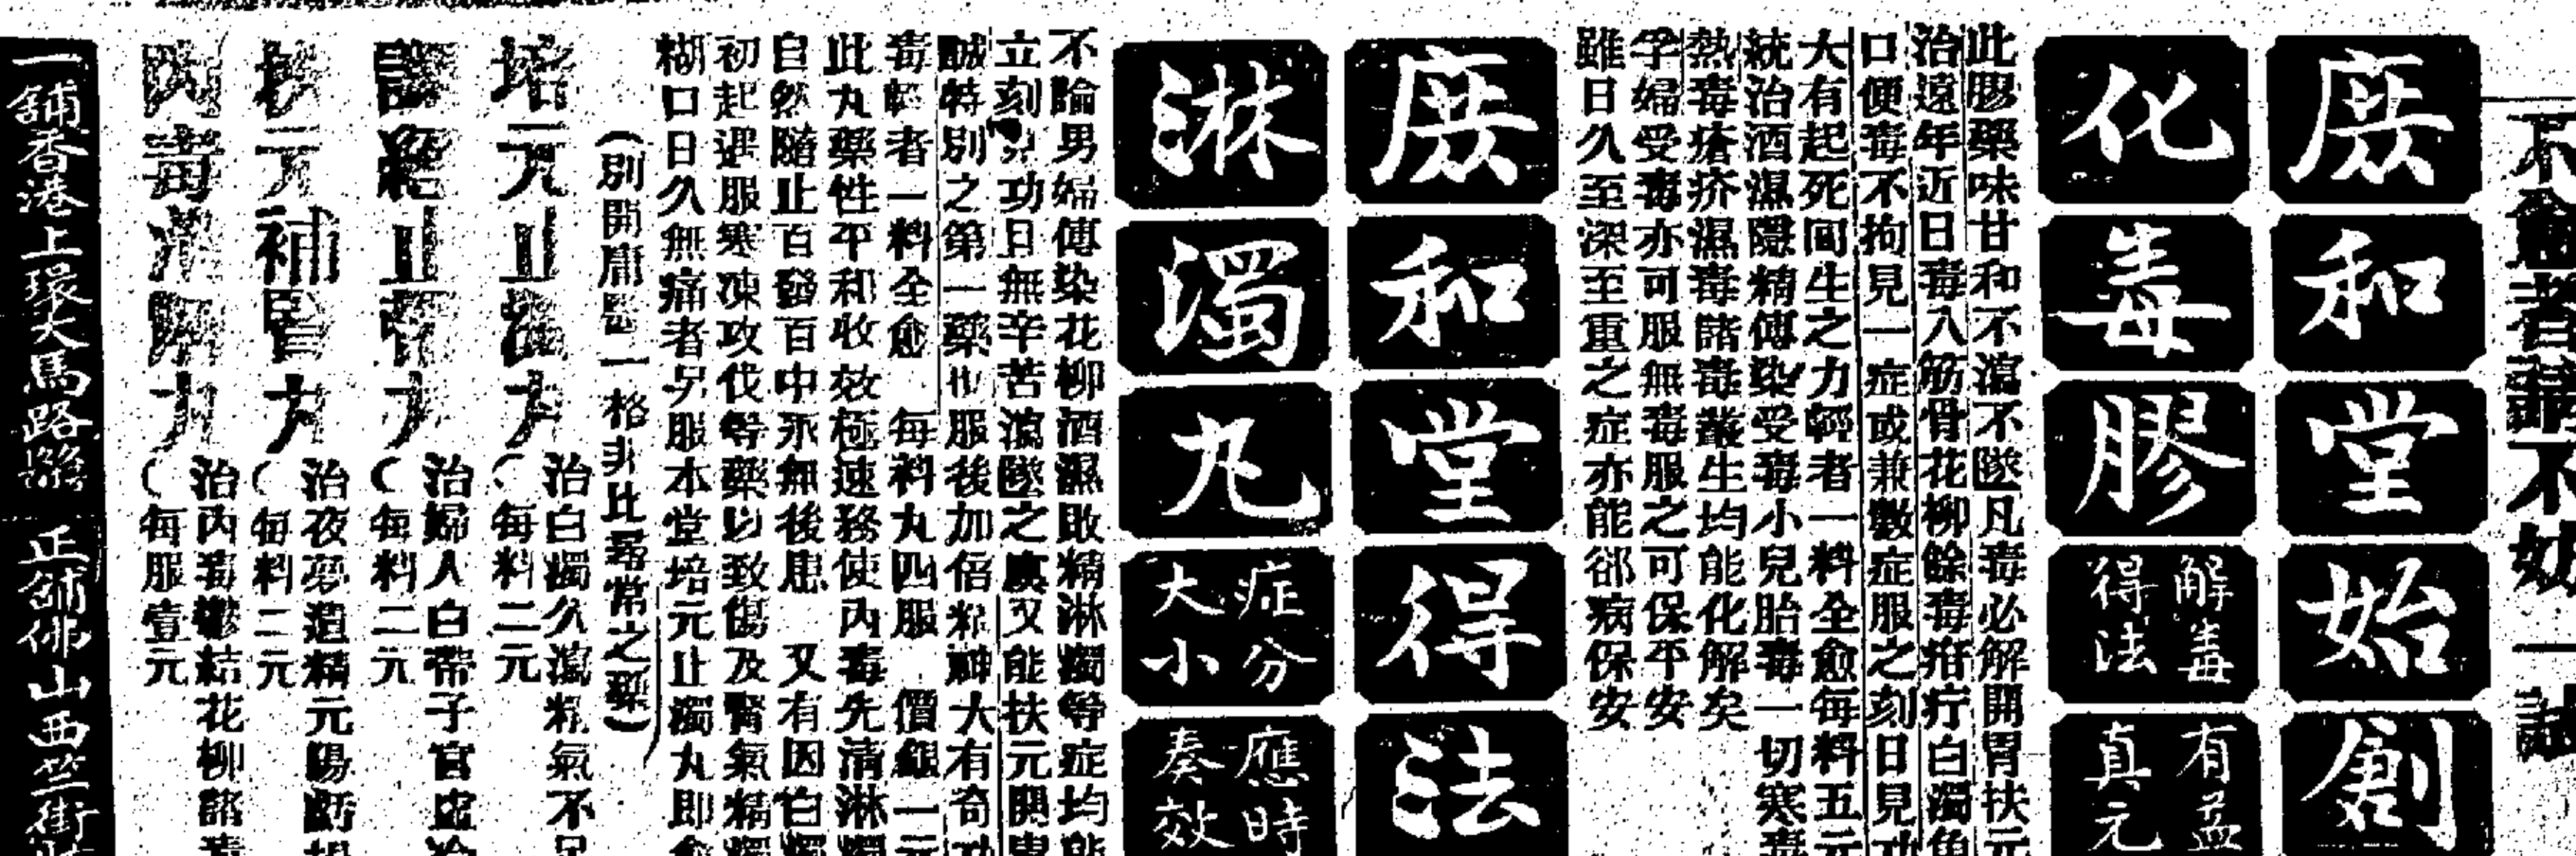 不愈者請不妨一試
庶和堂始創
化毒膠
解毒得法
有益真元
此膠藥味甘和不瀉不墜凡毒必解開胃扶元
治遠年近日毒入筋骨花柳餘毒疳疔白濁魚
口便毒不拘見一症或兼數症服之刻日見功
大有起死回生之力輕者一料全愈每料五元
統治酒濕隱精傳染受毒小兒胎毒一切寒毒
熱毒瘡疥濕毒諸毒叢生均能化解矣
孕婦受毒亦可服無毒服之可保平安
雖日久至深至重之症亦能卻病保安
庶和堂得法
淋濁丸
症分大小
應時奏效
不論男婦傳染花柳酒濕敗精淋濁等症均能
立刻見功且無辛苦瀉墜之虞又能扶元開胃
誠特別之第一藥也服後加倍精神大有奇功
毒輕者一料全愈 每料丸四服 價銀一元
此丸藥性平和收效極速務使內毒先清淋濁
自然隨止百發百中永無後患 又有因白濁
初起過服寒凍攻伐等藥以致傷及腎氣精濁
糊口日久無痛者另服本堂培元止濁丸即愈
(別開庸醫一格非比尋常之藥)
培元止濁丸
治白濁久瀉精氣不足
每料二元
止帶丸
治婦人白帶子宮虛冷
每料二元
扶元補腎丸
治夜夢遺精元陽虧損
每料二元
內毒清
治內毒鬱結花柳諸毒
每服壹元
一舖香港上環大馬路 正舖佛山西竺街